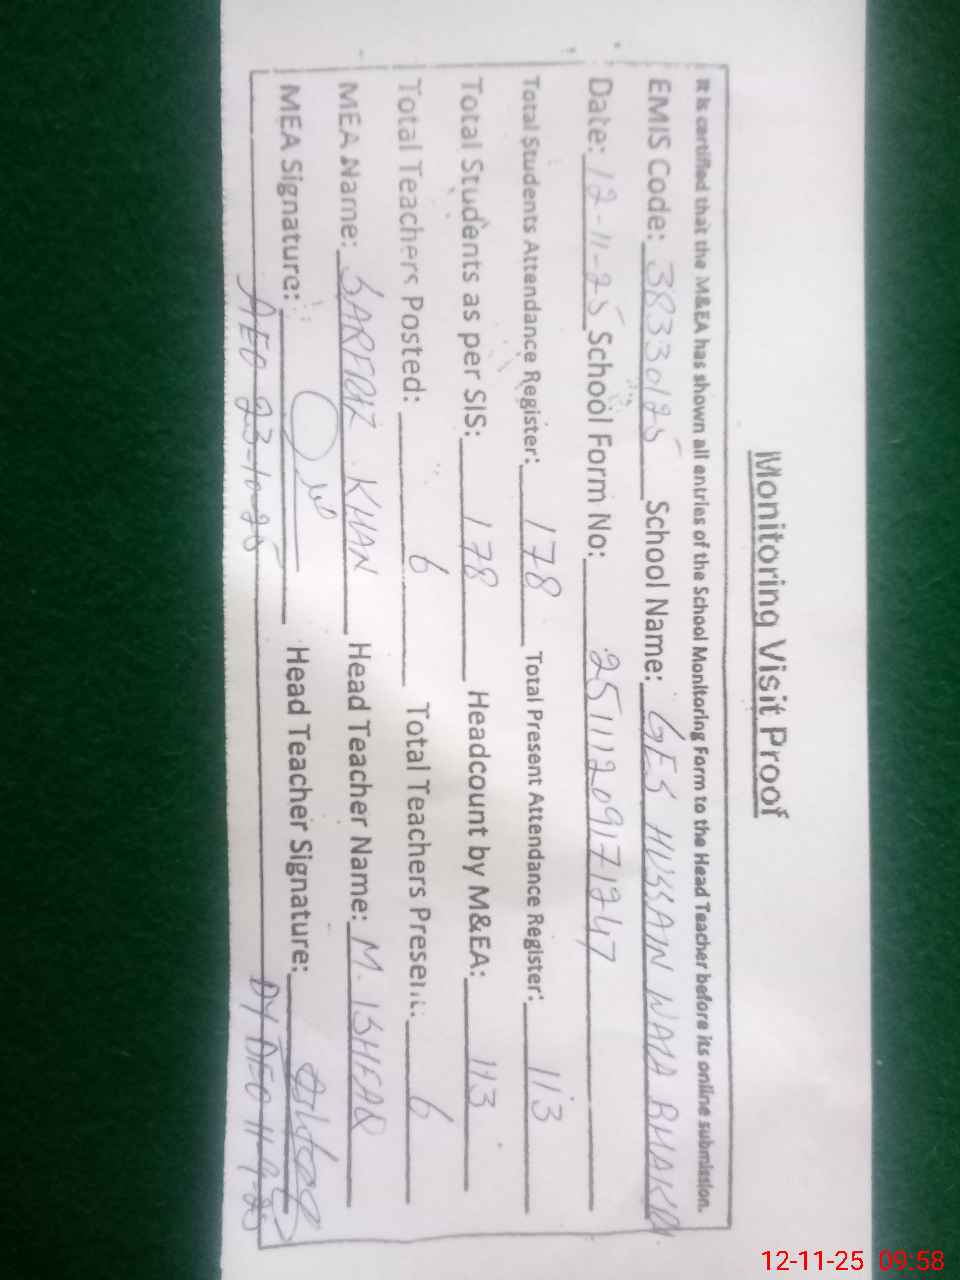 Monitoring Visit Proof
It is certified that the M&EA has shown all entries of the School Monitoring Form to the Head Teacher before its online submission.
EMIS Code: 38330125 School Name: GES HUSSAIN WALA BHAKKAR
Date: 12-11-25 School Form No: 25111209171247
Total Students Attendance Register: 178 Total Present Attendance Register: 113
Total Students as per SIS: 178 Headcount by M&EA: 113
Total Teachers Posted: 6 Total Teachers Present: 6
MEA Name: SARFRAZ KHAN Head Teacher Name: M. ISHFAQ
MEA Signature: Head Teacher Signature:
AEO 23-10-25 DY DEO 11-9-25
12-11-25 09:58